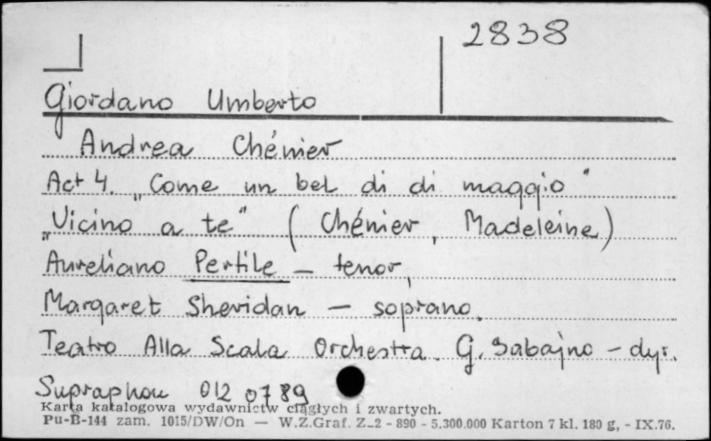 2838
Giordano Umberto
Andrea Chénier
Act 4. „Come un bel di di maggio"
„Vicino a te" (Chénier, Madeleine)
Aureliano Pertile – tenor,
Margaret Sheridan – soprano.
Teatro Alla Scala Orchestra. G. Sabajno – dyr.
Supraphon 012 0789
Karta katalogowa wydawnictw ciągłych i zwartych.
Pu-B-144 zam. 1015/DW/On — W.Z.Graf. Z-2 - 890 - 5.300.000 Karton 7 kl. 180 g, - IX.76.